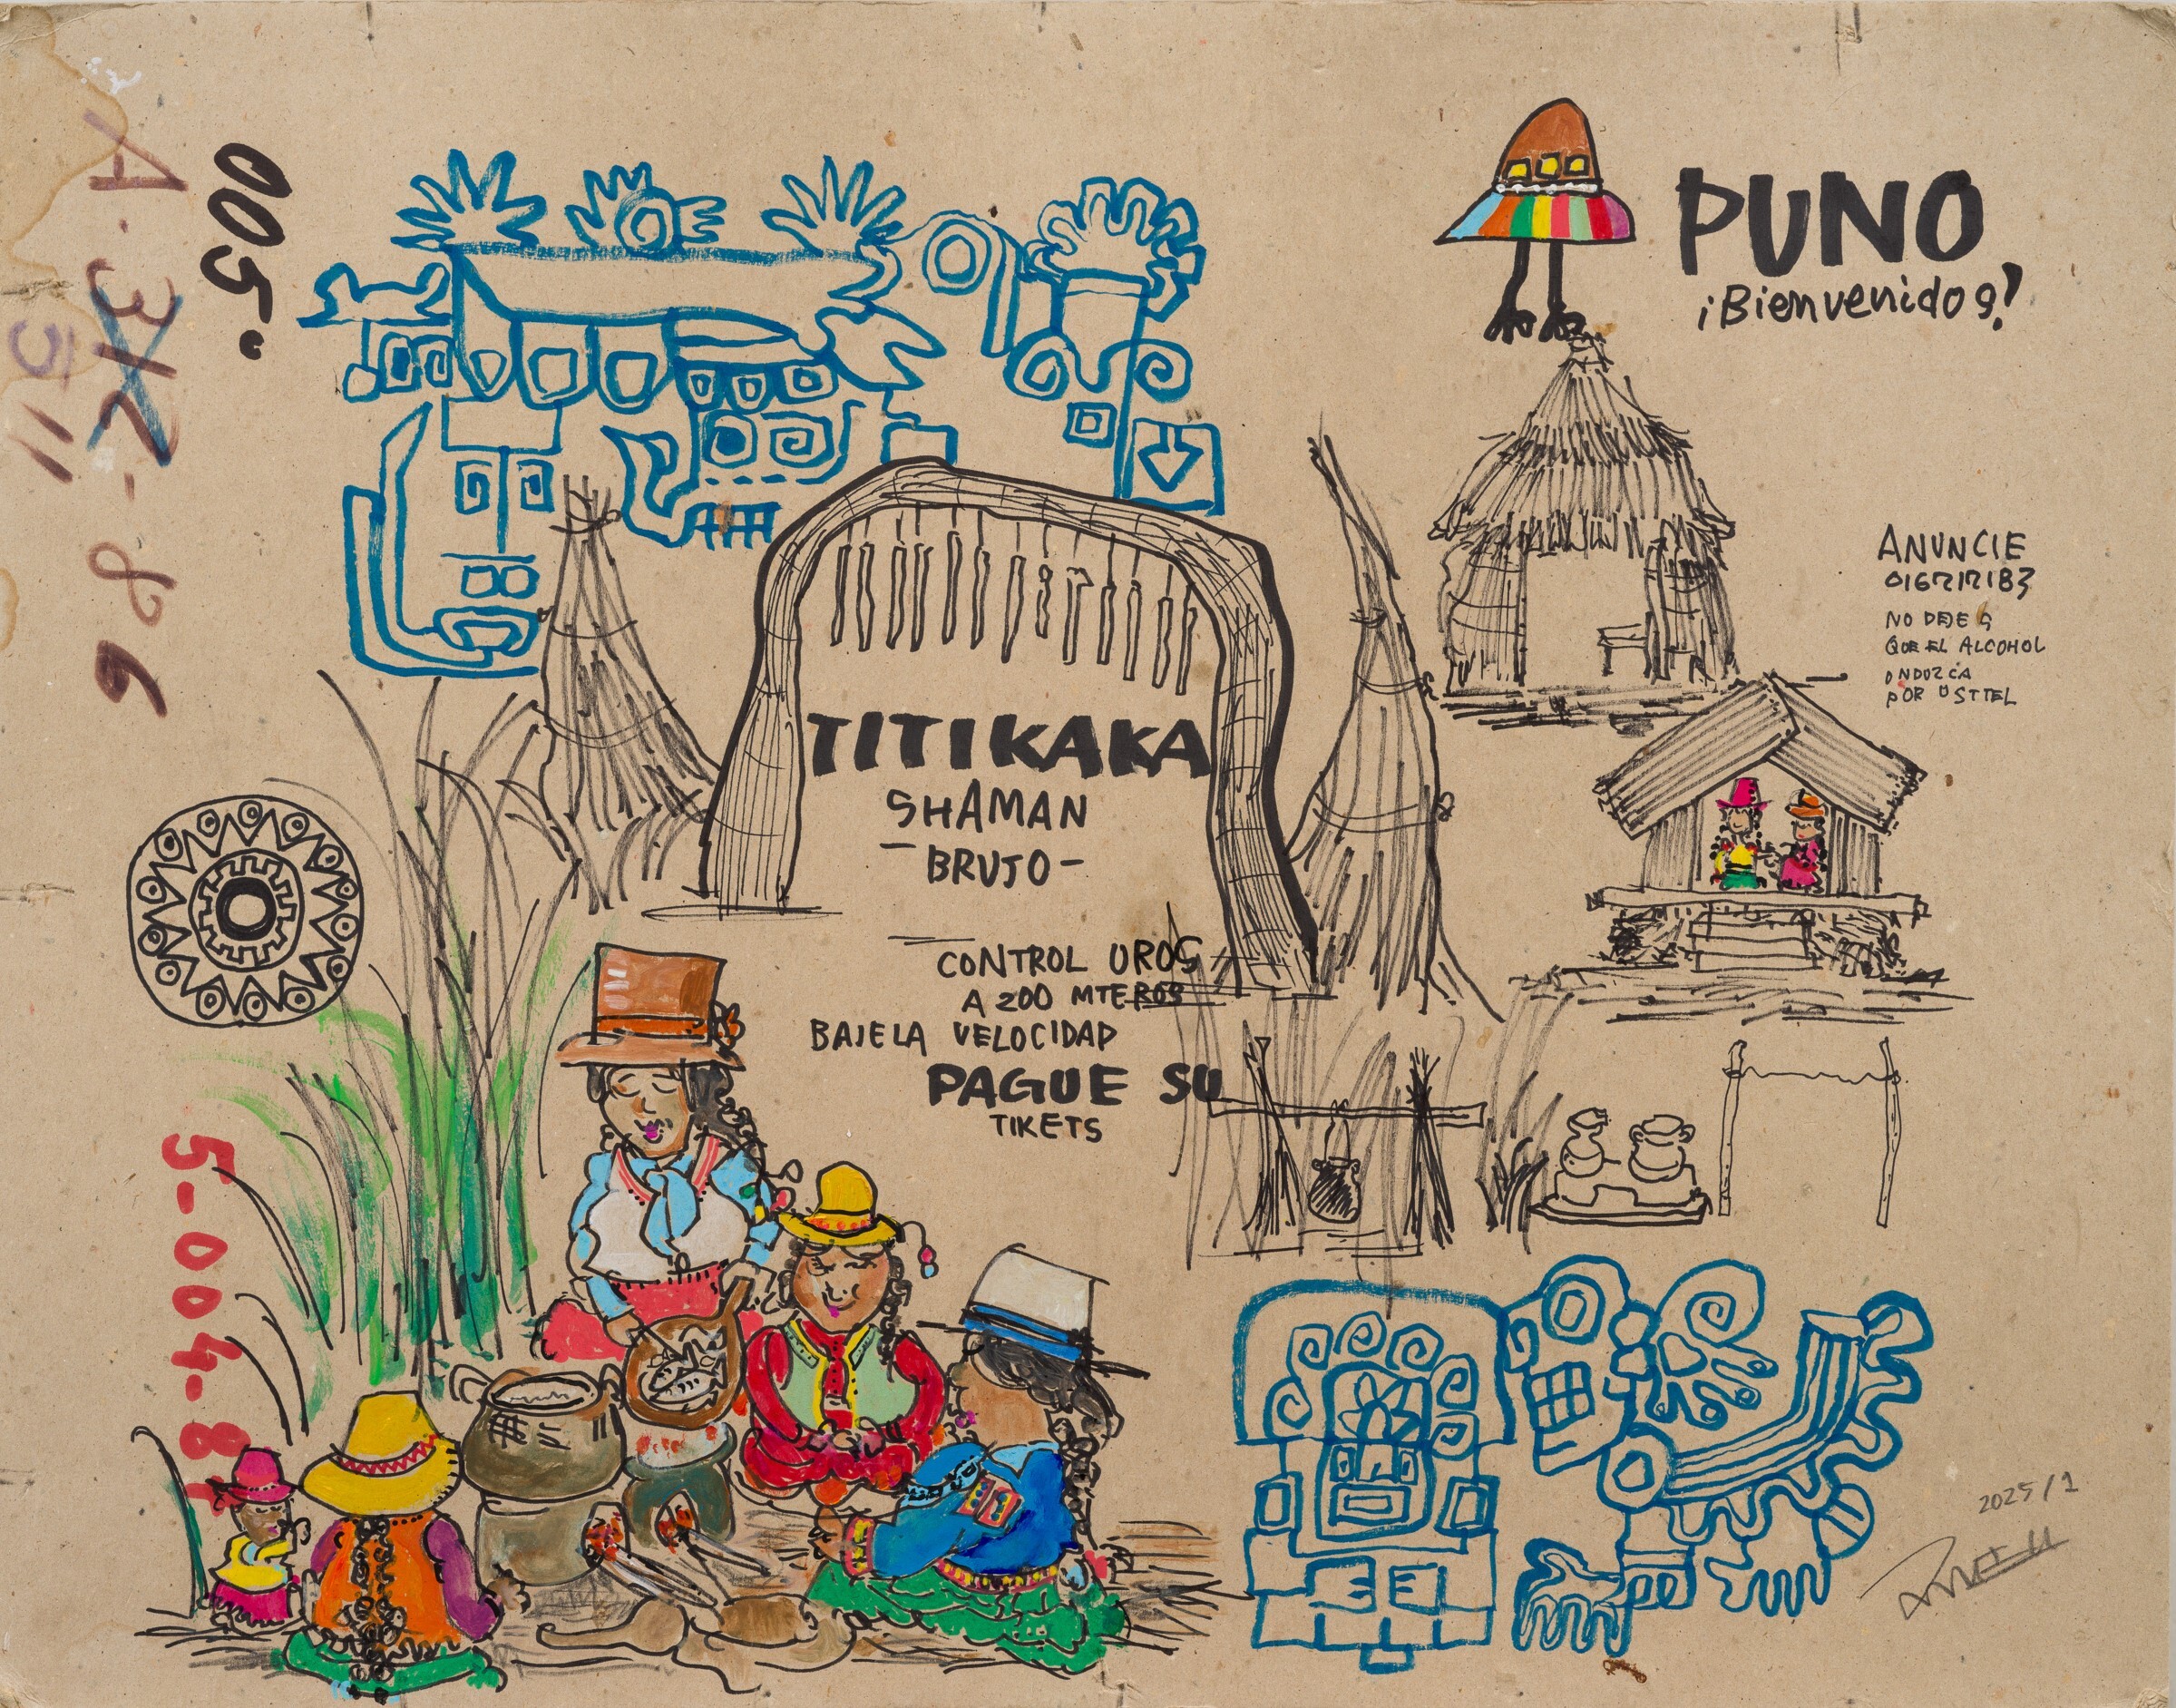 005.
A.
5-004-81
PUNO
¡Bienvenidos!
ANUNCIE
016717183
NO DEJES
QUE EL ALCOHOL
ONDUZCA
POR USTTEL
TITIKAKA
SHAMAN
-BRUJO-
CONTROL UROS
A 200 MTEROS
BAJE LA VELOCIDAD
PAGUE SU
TIKETS
2025/1